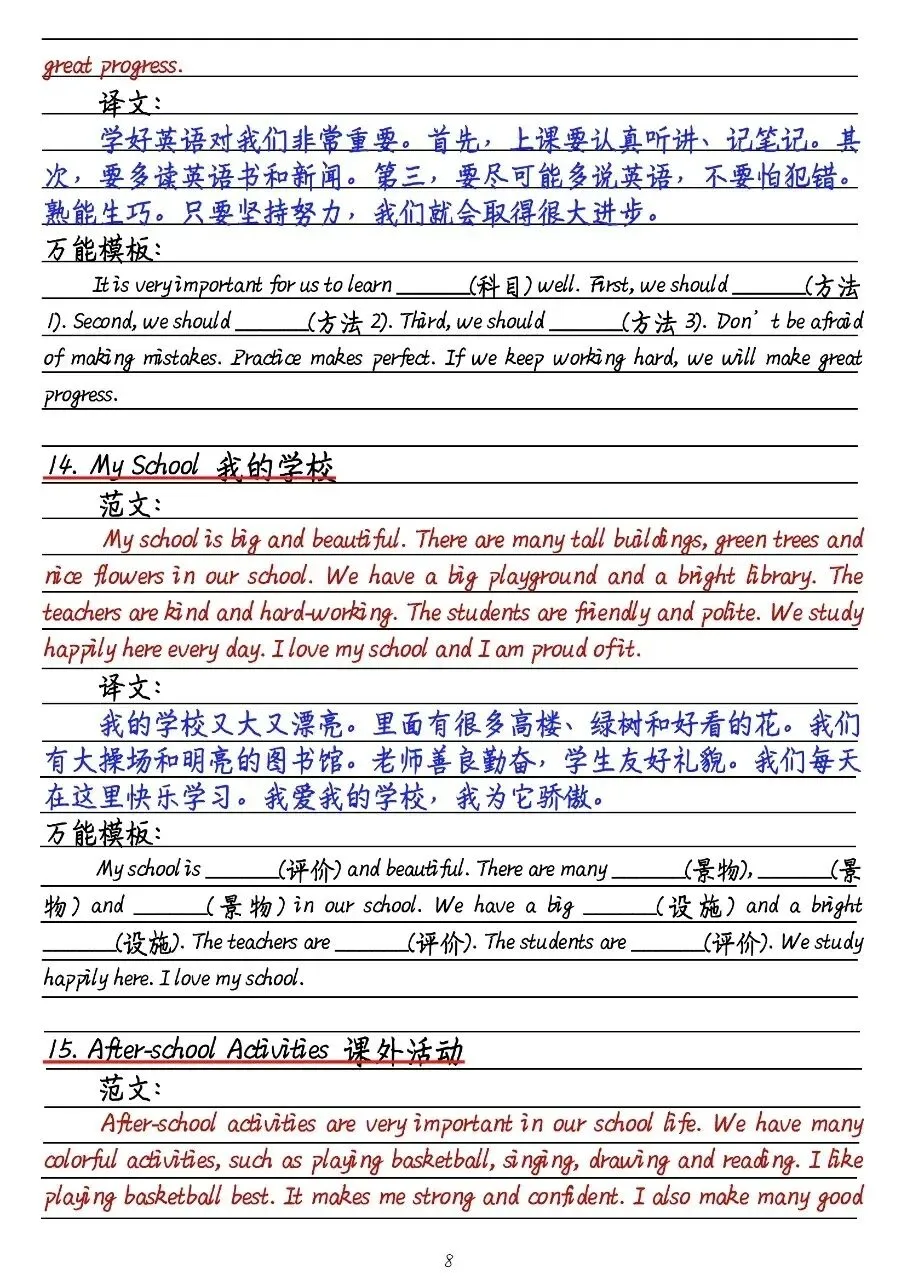 great progress.
译文：
学好英语对我们非常重要。首先，上课要认真听讲、记笔记。其
次，要多读英语书和新闻。第三，要尽可能多说英语，不要怕犯错。
熟能生巧。只要坚持努力，我们就会取得很大进步。
万能模板：
It is very important for us to learn ______(科目) well. First, we should ______(方法
1). Second, we should ______(方法 2). Third, we should ______(方法 3). Don't be afraid
of making mistakes. Practice makes perfect. If we keep working hard, we will make great
progress.
14. My School 我的学校
范文：
My school is big and beautiful. There are many tall buildings, green trees and
nice flowers in our school. We have a big playground and a bright library. The
teachers are kind and hard-working. The students are friendly and polite. We study
happily here every day. I love my school and I am proud of it.
译文：
我的学校又大又漂亮。里面有很多高楼、绿树和好看的花。我们
有大操场和明亮的图书馆。老师善良勤奋，学生友好礼貌。我们每天
在这里快乐学习。我爱我的学校，我为它骄傲。
万能模板：
My school is ______(评价) and beautiful. There are many ______(景物), ______(景
物) and ______(景物) in our school. We have a big ______(设施) and a bright
______(设施). The teachers are ______(评价). The students are ______(评价). We study
happily here. I love my school.
15. After-school Activities 课外活动
范文：
After-school activities are very important in our school life. We have many
colorful activities, such as playing basketball, singing, drawing and reading. I like
playing basketball best. It makes me strong and confident. I also make many good
8